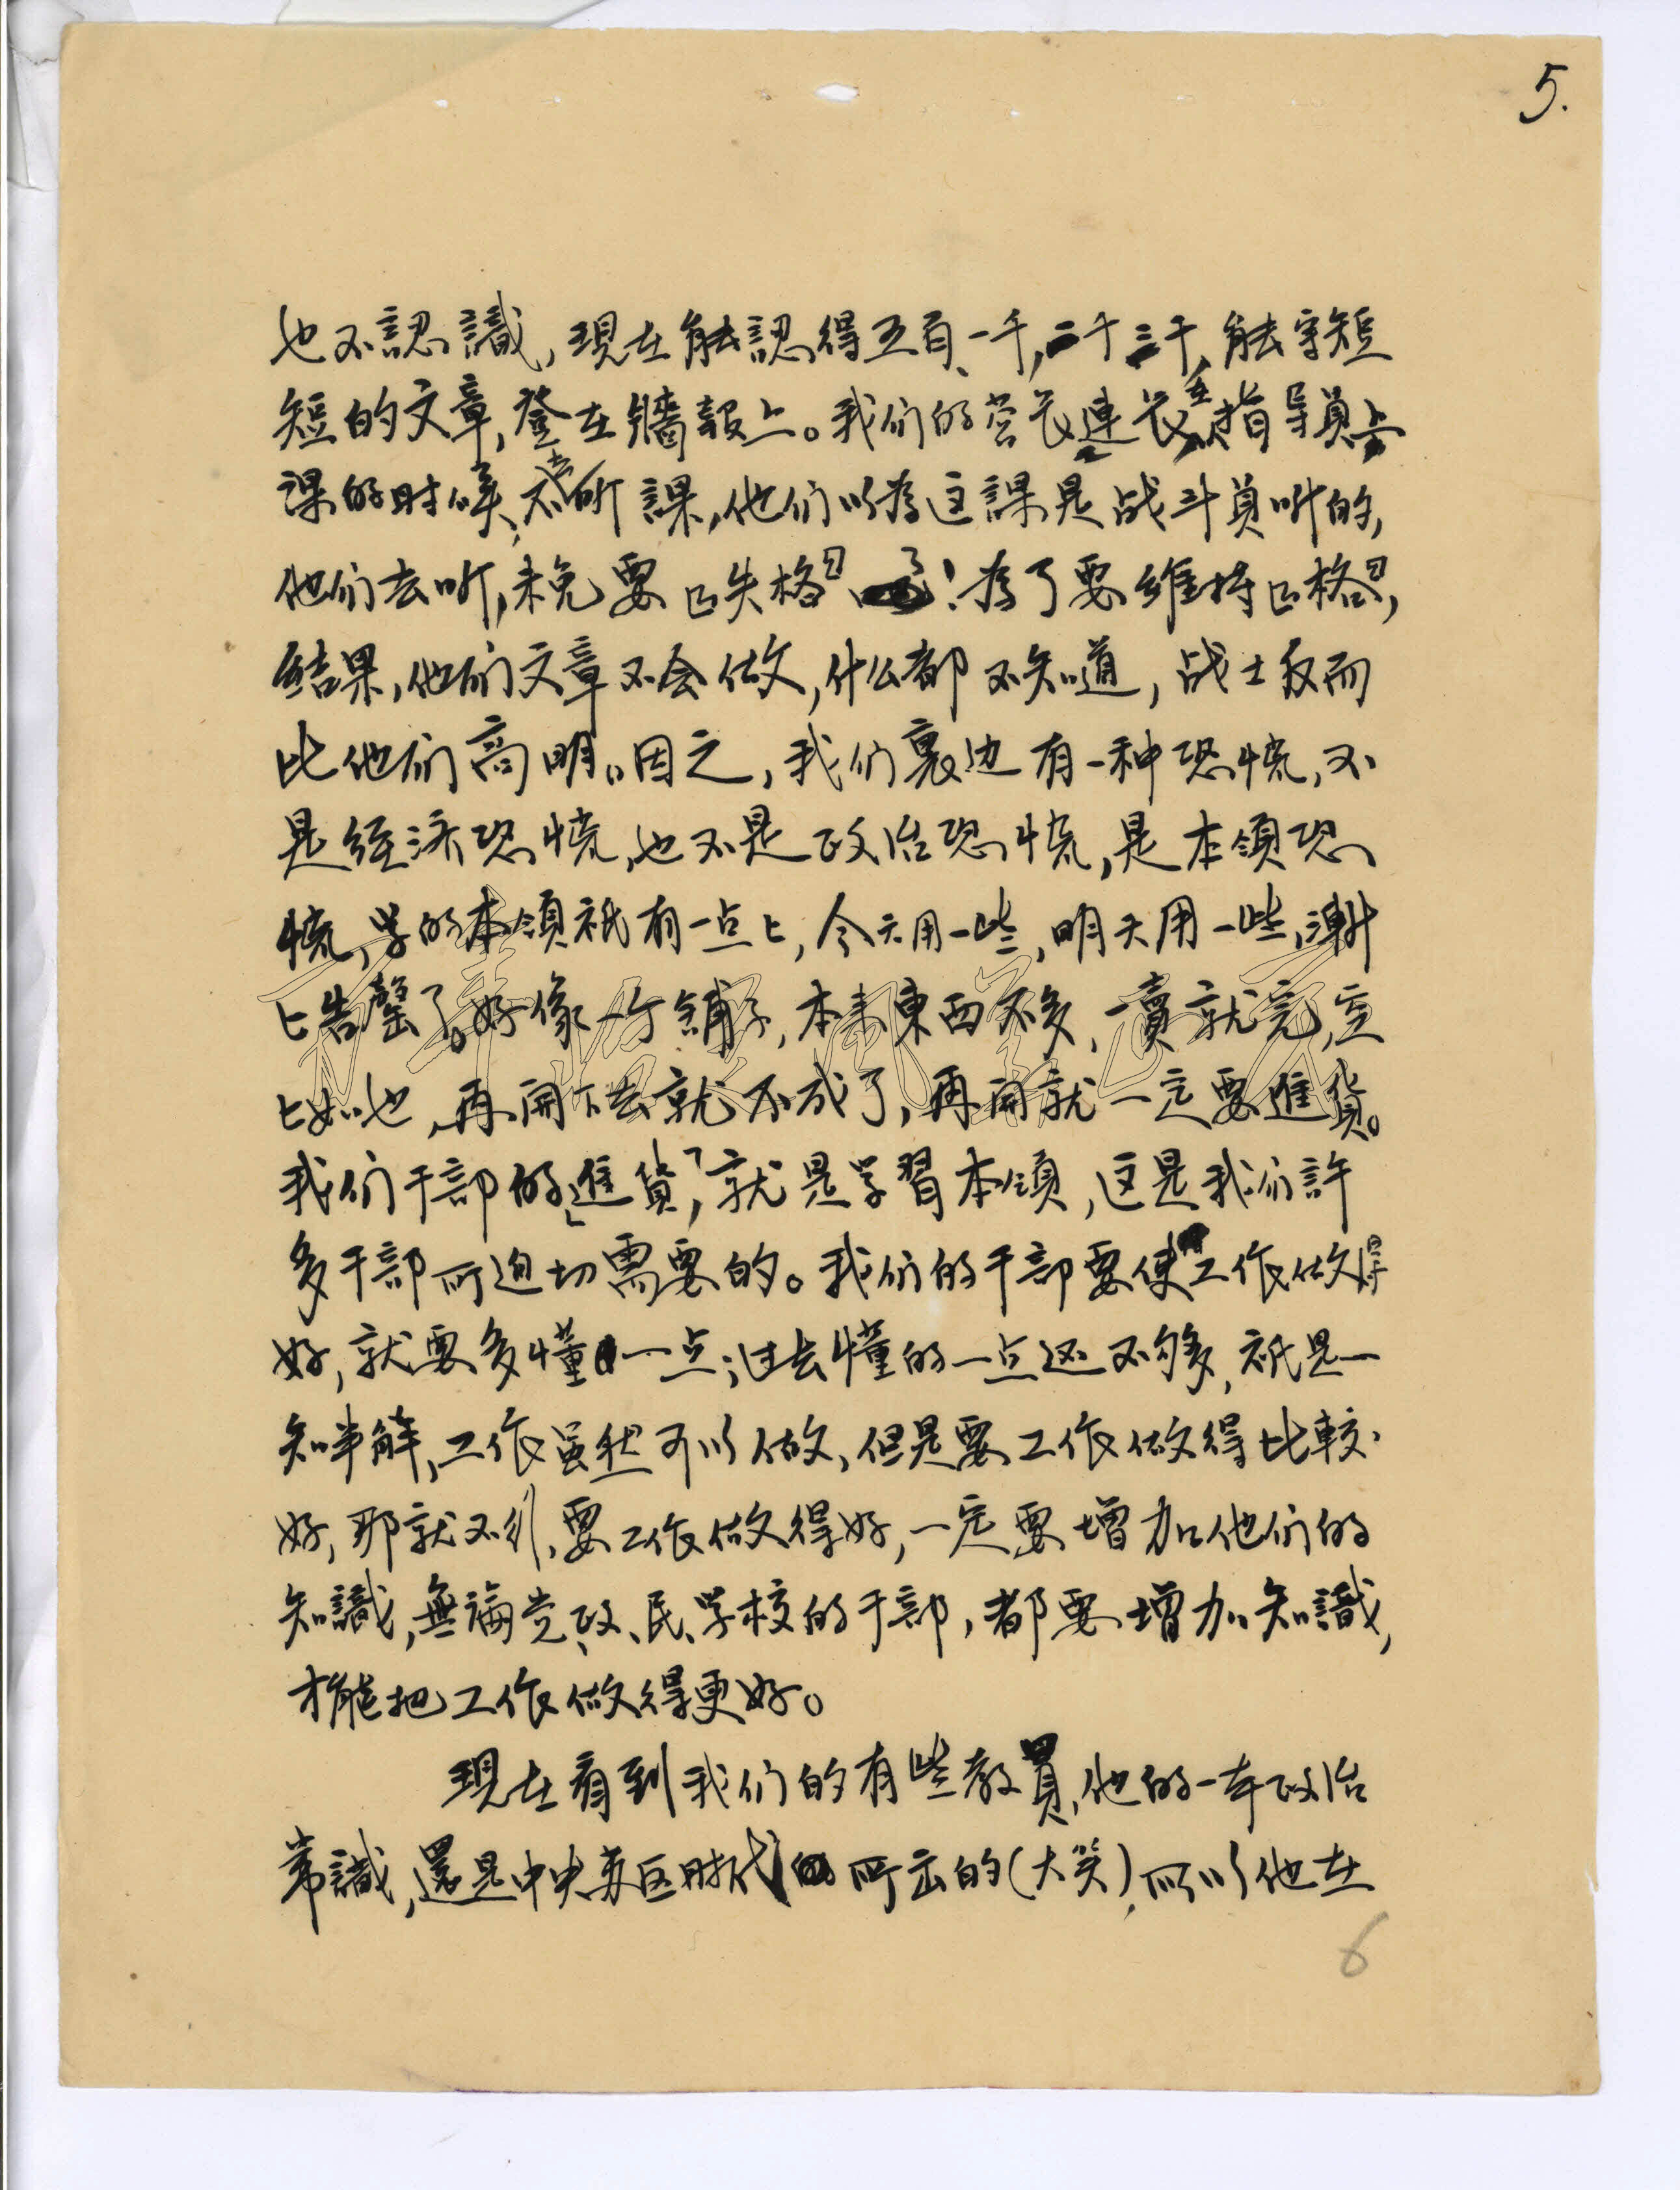 5.
也不認識，現在能認得五百、一千，二千三千，能写短
短的文章，登在牆報上。我们的营长連长在指导員上
課的时候，不去听課，他们以為这課是战斗員听的，
他们去听，未免要「失格」了！為了要維持「格」，
結果，他们文章不会做，什么都不知道，战士反而
比他们高明。因之，我们裏边有一种恐慌，不
是經济恐慌，也不是政治恐慌，是本領恐
慌，学的本領祇有一点上，今天用一些，明天用一些，漸
上告罄了。好像一个鋪子，本来東西不多，一賣就完，空
上如也，再開下去就不成了，再開就一定要進貨。
我们干部的「進貨」，就是学習本領，这是我们許
多干部所迫切需要的。我们的干部要使工作做得
好，就要多懂一点；过去懂的一点还不够，祇是一
知半解，工作虽然可以做，但是要工作做得比較
好，那就不行，要工作做得好，一定要增加他们的
知識，無論党、政、民、学校的干部，都要增加知識，
才能把工作做得更好。
現在看到我们的有些教員，他的一本政治
常識，還是中央苏区时代所出的（大笑），所以他在
6